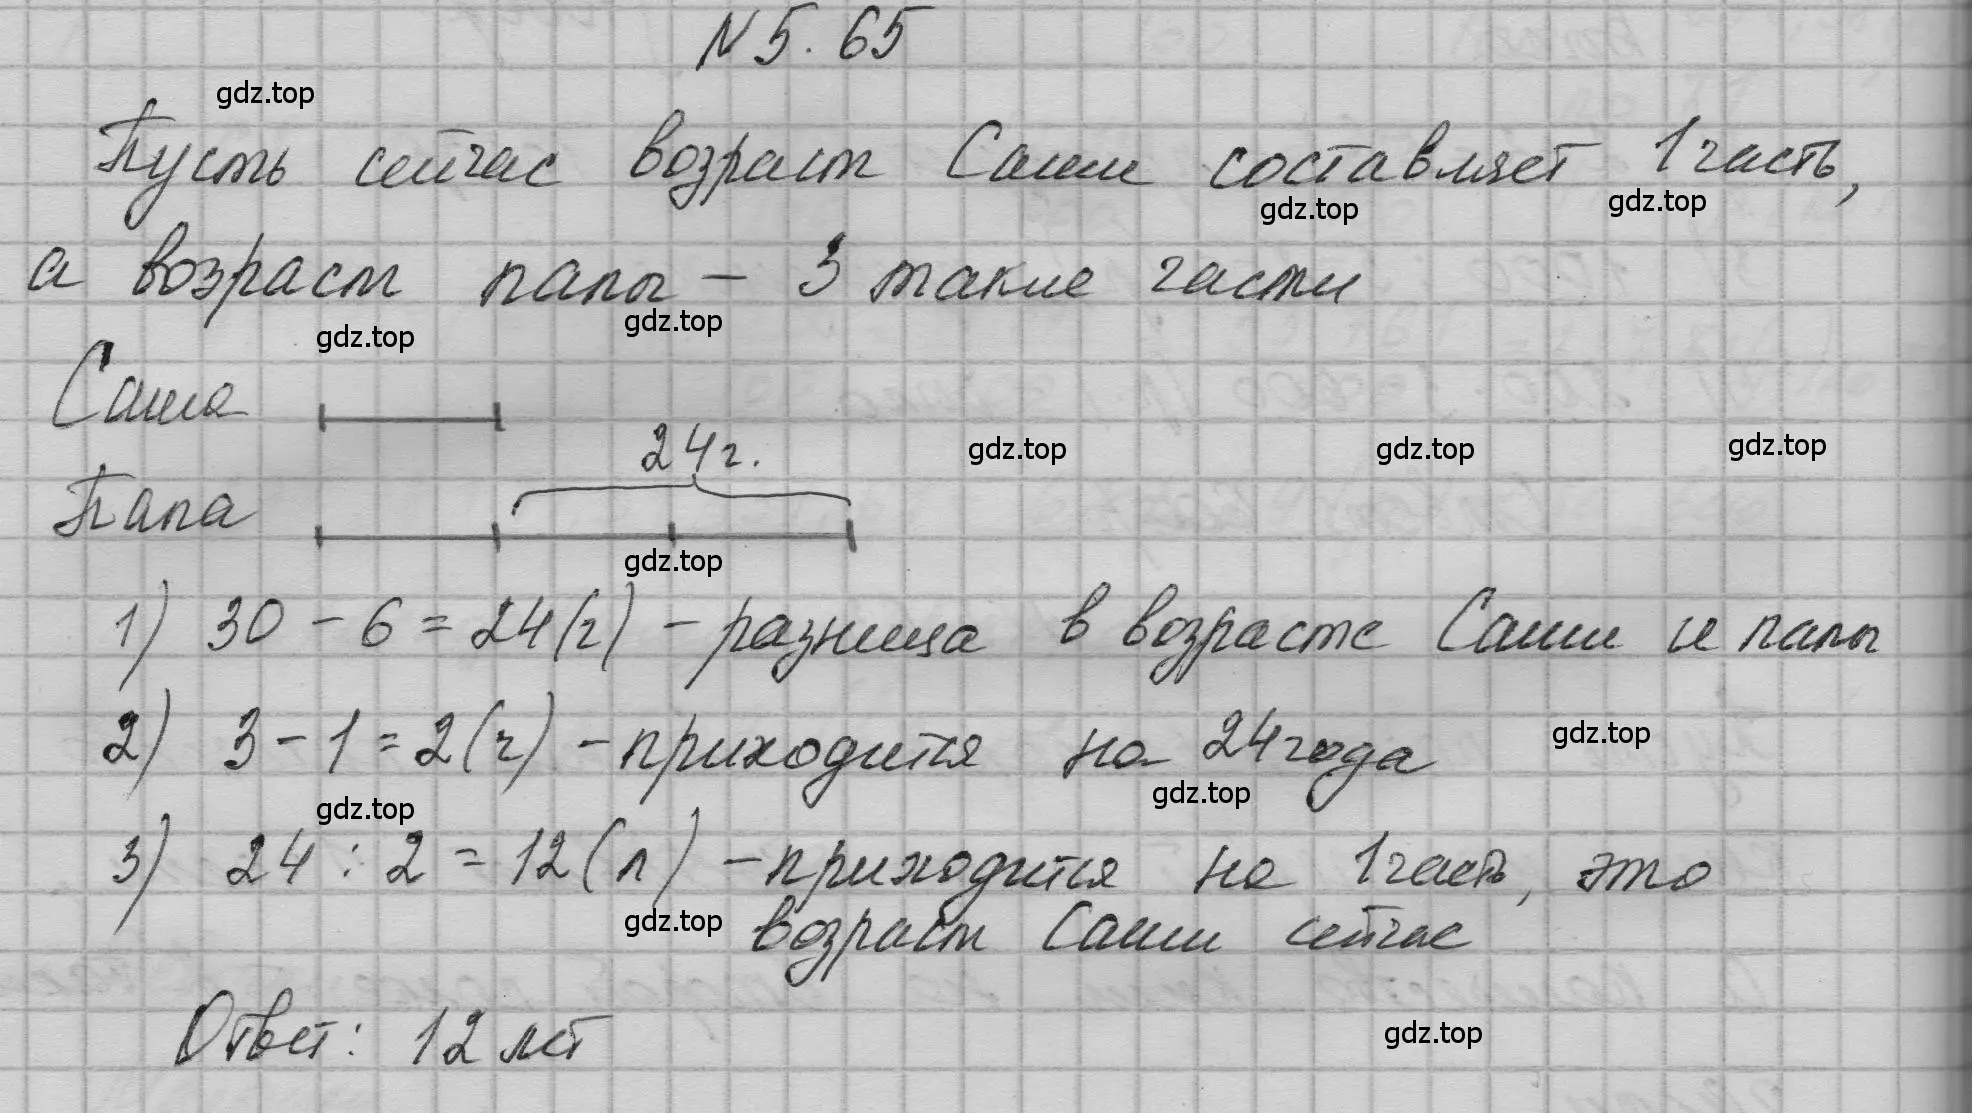 N 5.65
gdz.top
Пусть сейчас возраст Саши составляет 1 часть,
gdz.top gdz.top
а возраст папы – 3 такие части
gdz.top gdz.top
Саша
24 г. gdz.top gdz.top gdz.top
Папа
gdz.top
1) 30 – 6 = 24 (г) – разница в возрасте Саши и папы
2) 3 – 1 = 2 (ч) – приходится на 24 года gdz.top
gdz.top gdz.top
3) 24 : 2 = 12 (л) – приходится на 1 часть, это
gdz.top возраст Саши сейчас
Ответ: 12 лет gdz.top